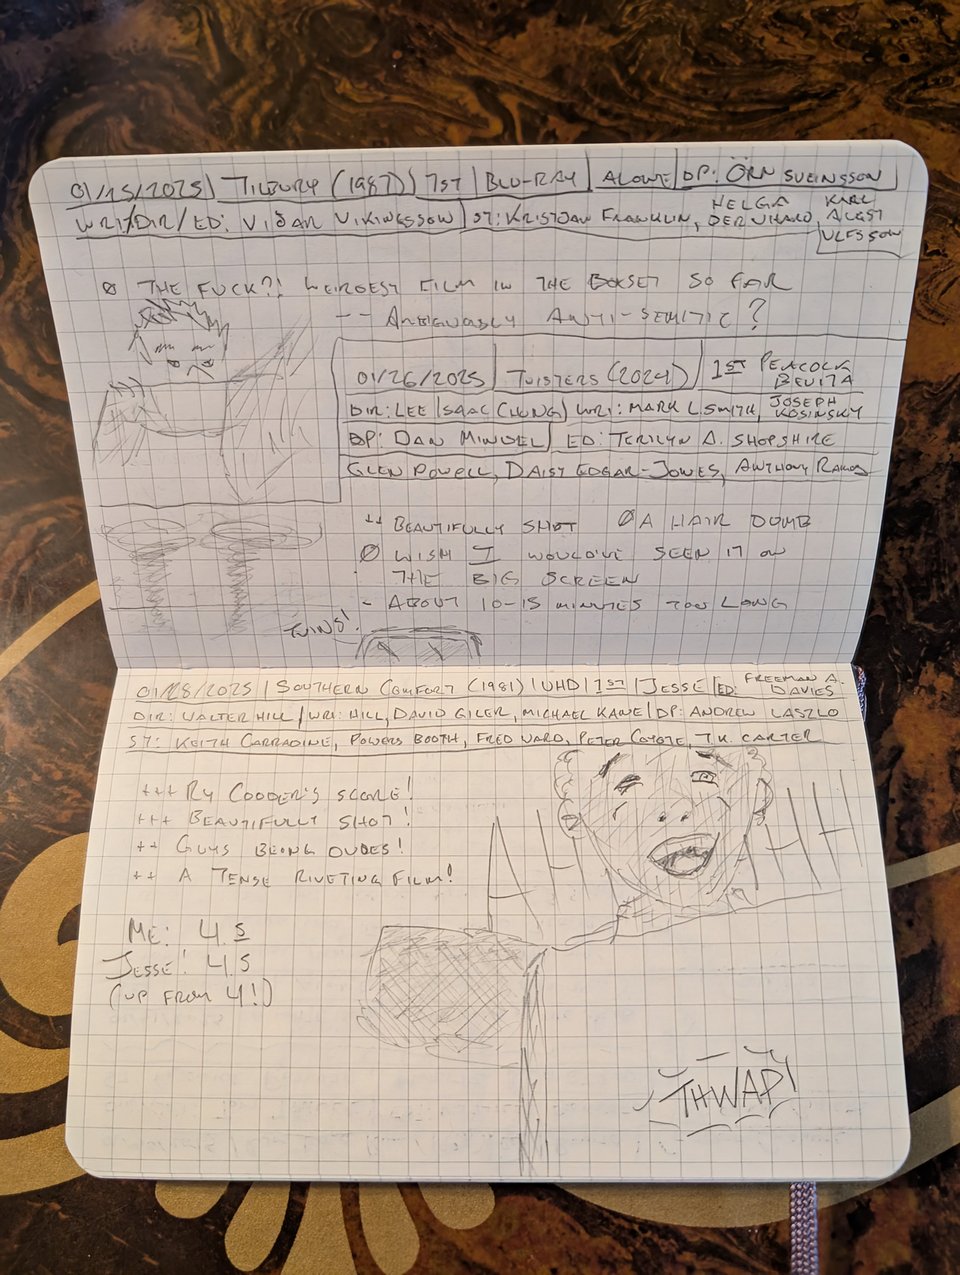 01/15/2025 | TILBURY (1987) | 1ST | BLU-RAY | ALONE | DP: ÖRN SVEINSSON
WRI/DIR/ED: VIÐAR VIKINGSSON | ST: KRISTJAN FRANKLIN, HELGA BERNHARD, KARL AUGST ULFSSON
Ø THE FUCK?! WEIRDEST FILM IN THE BOXSET SO FAR
-- AMBIGUOUSLY ANTI-SEMITIC?
01/26/2025 | TWISTERS (2024) | 1ST PEACOCK
DIR: LEE ISAAC CHUNG | WRI: MARK L SMITH, JOSEPH KOSINSKY
DP: DAN MINDEL | ED: TERILYN A. SHOPSHIRE
GLEN POWELL, DAISY EDGAR-JONES, ANTHONY RAMOS
++ BEAUTIFULLY SHOT Ø A HAIR DUMB
Ø WISH I WOULD'VE SEEN IT ON
THE BIG SCREEN
- ABOUT 10-15 MINUTES TOO LONG
TWINS!
01/28/2025 | SOUTHERN COMFORT (1981) | UHD | 1ST | JESSE | ED: FREEMAN A. DAVIES
DIR: WALTER HILL | WRI: HILL, DAVID GILER, MICHAEL KANE | DP: ANDREW LASZLO
ST: KEITH CARRADINE, POWERS BOOTH, FRED WARD, PETER COYOTE, T.K. CARTER
+++ RY COODER'S SCORE!
+++ BEAUTIFULLY SHOT!
++ GUYS BEING DUDES!
++ A TENSE RIVETING FILM!
AHHHHH
ME: 4.5
JESSE: 4.5
(UP FROM 4!)
THWAP!